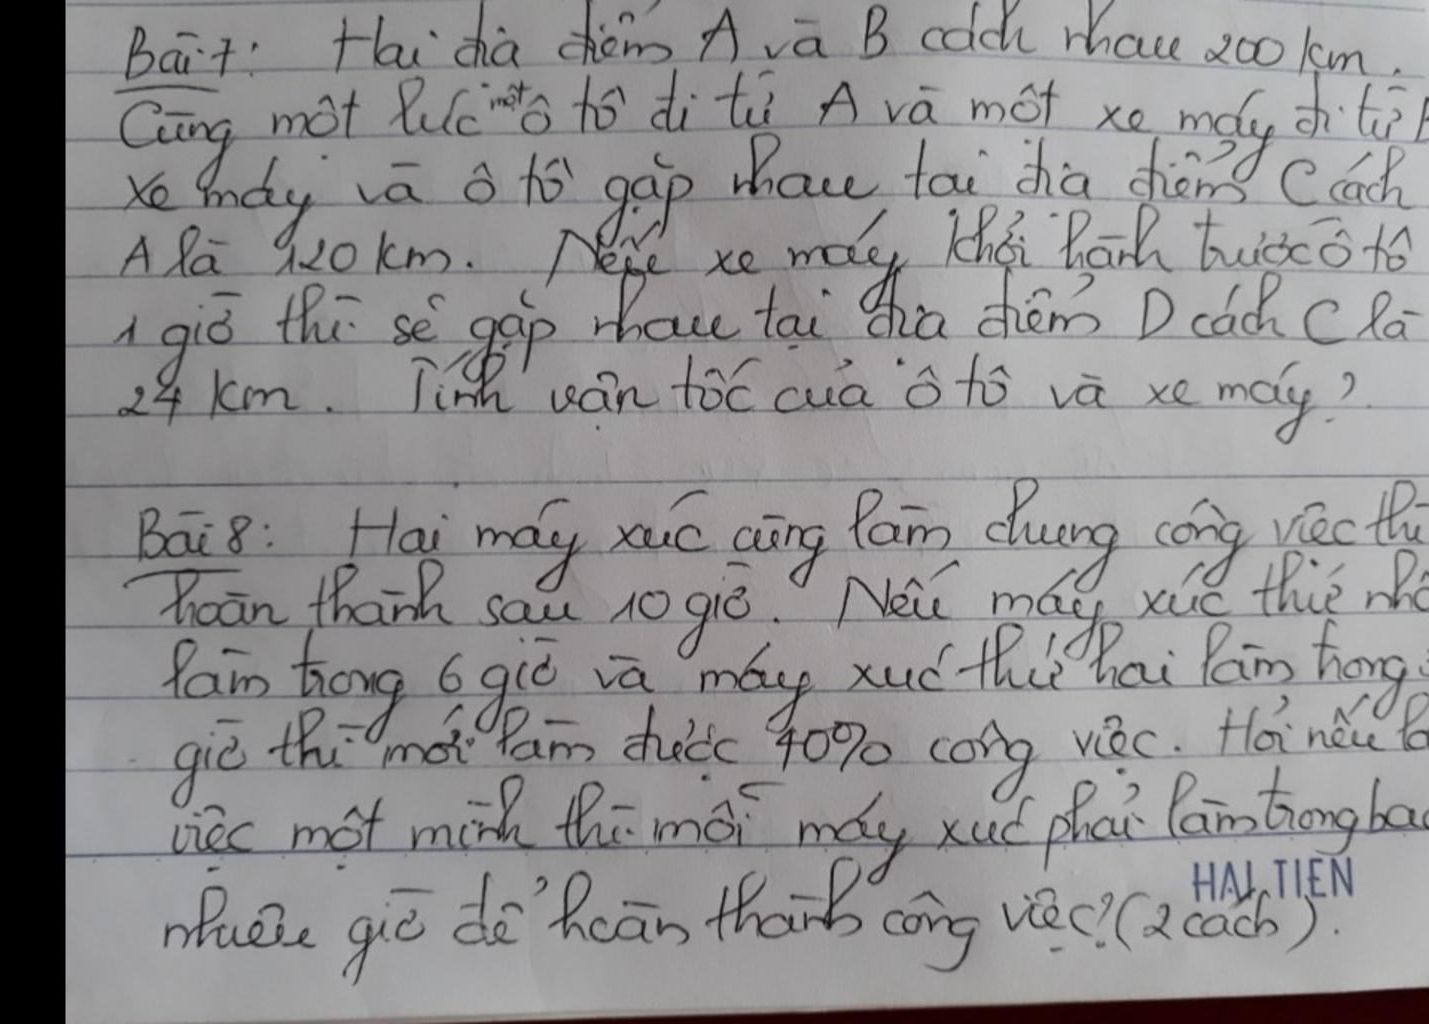 Bài 7: Hai địa điểm A và B cách nhau 200 km.
Cùng một lúc một ô tô đi từ A và một xe máy đi từ B
xe máy và ô tô gặp nhau tại địa điểm C cách
A là 120 km. Nếu xe máy khởi hành trước ô tô
1 giờ thì sẽ gặp nhau tại địa điểm D cách C là
24 km. Tính vận tốc của ô tô và xe máy?
Bài 8: Hai máy xúc cùng làm chung công việc thì
hoàn thành sau 10 giờ. Nếu máy xúc thứ
làm trong 6 giờ và máy xúc thứ hai làm trong
giờ thì mới làm được 40% công việc. Hỏi nếu
việc một mình thì mỗi máy xúc phải làm trong bao
nhiêu giờ để hoàn thành công việc? (2 cách).
HẢI TIẾN